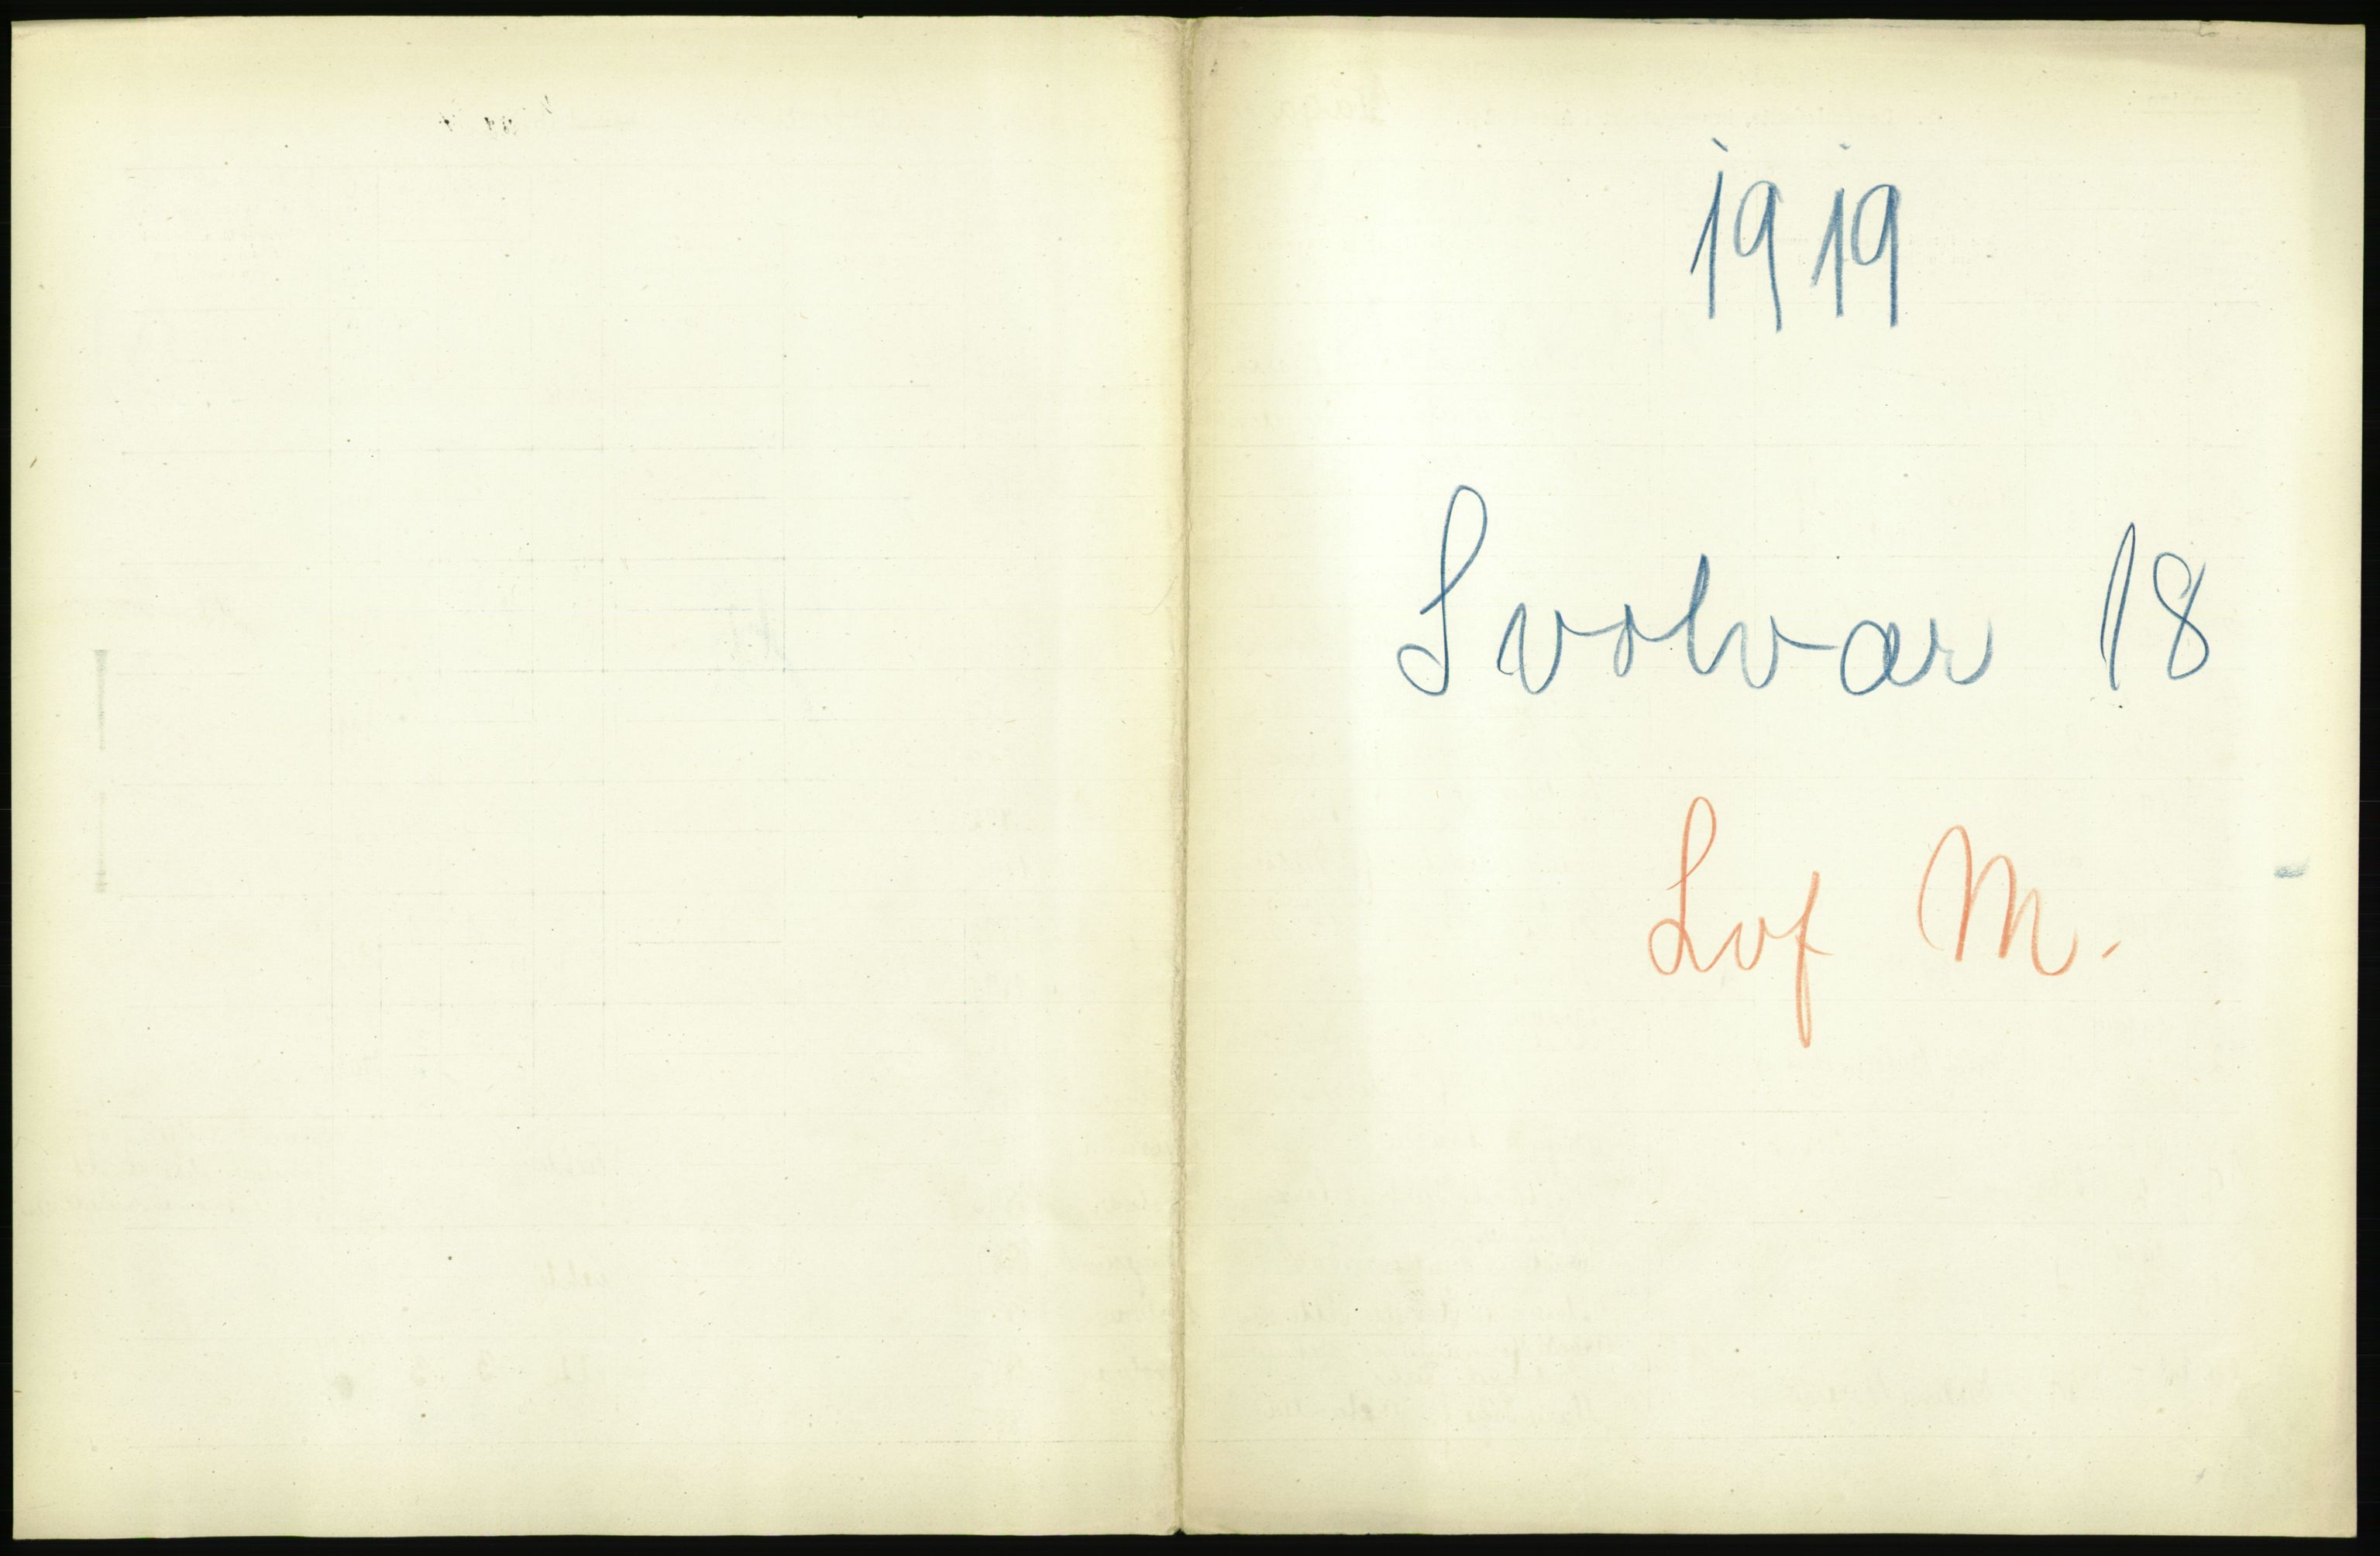 1919
Svolvær 18
Lof M.